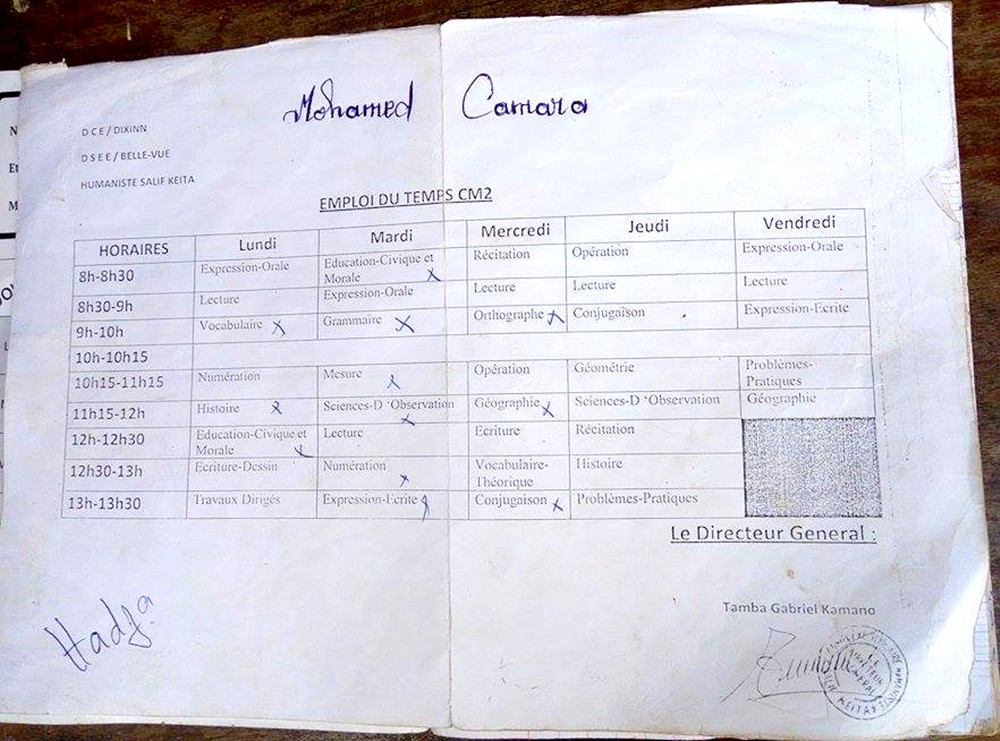 Mohamed Camara
D C E / DIXINN
D S E E / BELLE-VUE
HUMANISTE SALIF KEITA
EMPLOI DU TEMPS CM2
HORAIRES Lundi Mardi Mercredi Jeudi Vendredi
8h-8h30 Expression-Orale Education-Civique et Morale Récitation Opération Expression-Orale
8h30-9h Lecture Expression-Orale Lecture Lecture Lecture
9h-10h Vocabulaire Grammaire Orthographe Conjugaison Expression-Ecrite
10h-10h15
10h15-11h15 Numération Mesure Opération Géométrie Problèmes-Pratiques
11h15-12h Histoire Sciences-D 'Observation Géographie Sciences-D 'Observation Géographie
12h-12h30 Education-Civique et Morale Lecture Ecriture Récitation
12h30-13h Ecriture-Dessin Numération Vocabulaire-Théorique Histoire
13h-13h30 Travaux Dirigés Expression-Ecrite Conjugaison Problèmes-Pratiques
Le Directeur General :
Tamba Gabriel Kamano
Hadja
LE DIRECTEUR GENERAL
HUMANISTE
KEITA